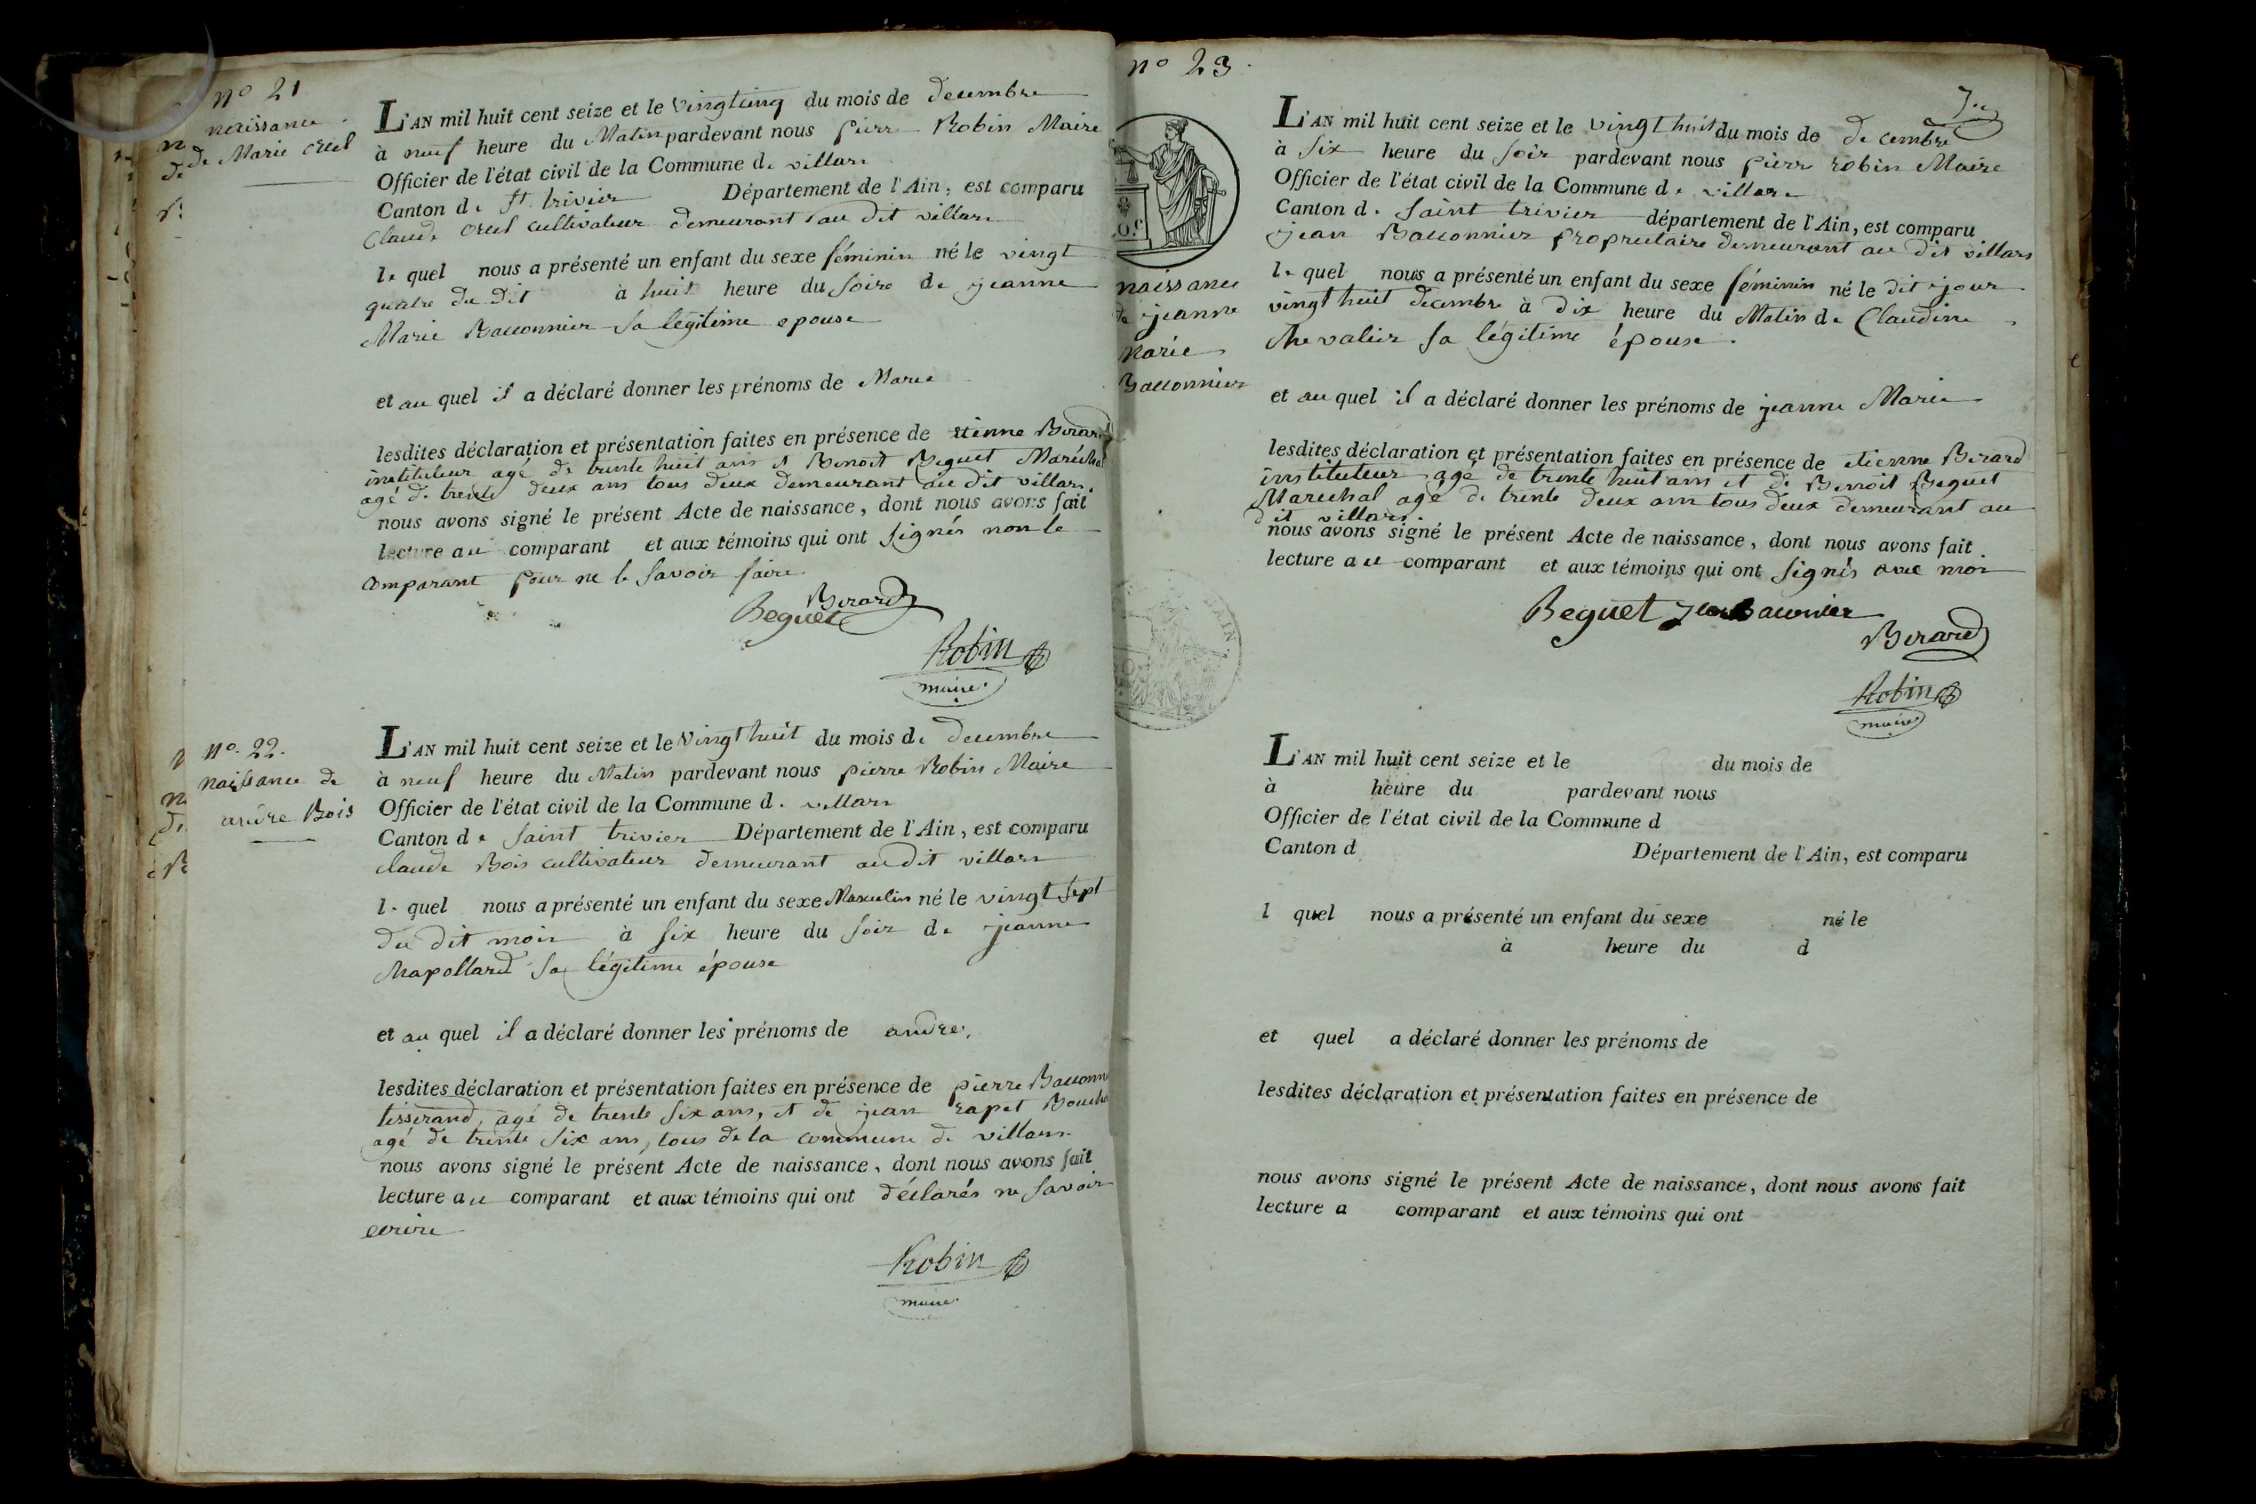 nº 21
naissance
de Marie orcel
L'AN mil huit cent seize et le vingt cinq du mois de decembre
à neuf heure du Matin pardevant nous pierre Robin Maire
Officier de l'état civil de la Commune de villars
Canton de St. trivier Département de l'Ain, est comparu
Claude orcel cultivateur demeurant au dit villars
le quel nous a présenté un enfant du sexe féminin né le vingt
quatre du dit à huit heure du soire de jeanne
Marie Bacconnier sa légitime epouse
et au quel il a déclaré donner les prénoms de Marie
lesdites déclaration et présentation faites en présence de etienne Berard
instituteur agé de trente huit ans et Benoit Beguet Maréchal
agé de trente deux ans tous deux demeurant au dit villars.
nous avons signé le présent Acte de naissance, dont nous avons fait
lecture au comparant et aux témoins qui ont signés non le
comparant pour ne le savoir faire
Berard
Beguet
Robin
maire.
nº. 22.
naissance de
andre Bois
L'AN mil huit cent seize et le vingt huit du mois de decembre
à neuf heure du Matin pardevant nous pierre Robin Maire
Officier de l'état civil de la Commune de villars
Canton de saint trivier Département de l'Ain, est comparu
claude Bois cultivateur demeurant au dit villars
le quel nous a présenté un enfant du sexe Masculin né le vingt sept
du dit mois à six heure du soir de jeanne
Mapollard sa légitime épouse
et au quel il a déclaré donner les prénoms de andre.
lesdites déclaration et présentation faites en présence de pierre Bacconn
tisserand, agé de trente six ans, et de jean rapet Bouche
agé de trente six ans, tous de la commune de villars
nous avons signé le présent Acte de naissance, dont nous avons fait
lecture au comparant et aux témoins qui ont déclarés ne savoir
ecrire
Robin
maire.
nº 23.
naissance
de jeanne
Marie
Bacconnier
L'AN mil huit cent seize et le vingt huit du mois de decembre
à six heure du soir pardevant nous pierre robin Maire
Officier de l'état civil de la Commune de villars
Canton de saint trivier département de l'Ain, est comparu
jean Bacconnier propriétaire demeurant au dit villars
le quel nous a présenté un enfant du sexe féminin né le dit jour
vingt huit decembre à dix heure du Matin de Claudine
chevalier sa légitime épouse.
et au quel il a déclaré donner les prénoms de jeanne Marie
lesdites déclaration et présentation faites en présence de etienne Berard
instituteur agé de trente huit ans et de Benoit Beguet
Marechal agé de trente deux ans tous deux demeurant au
dit villars.
nous avons signé le présent Acte de naissance, dont nous avons fait
lecture au comparant et aux témoins qui ont signés avec moi
Beguet
Berard
Robin
maire
L'AN mil huit cent seize et le du mois de
à heure du pardevant nous
Officier de l'état civil de la Commune d
Canton d Département de l'Ain, est comparu
l quel nous a présenté un enfant du sexe né le
à heure du d
et quel a déclaré donner les prénoms de
lesdites déclaration et présentation faites en présence de
nous avons signé le présent Acte de naissance, dont nous avons fait
lecture a comparant et aux témoins qui ont